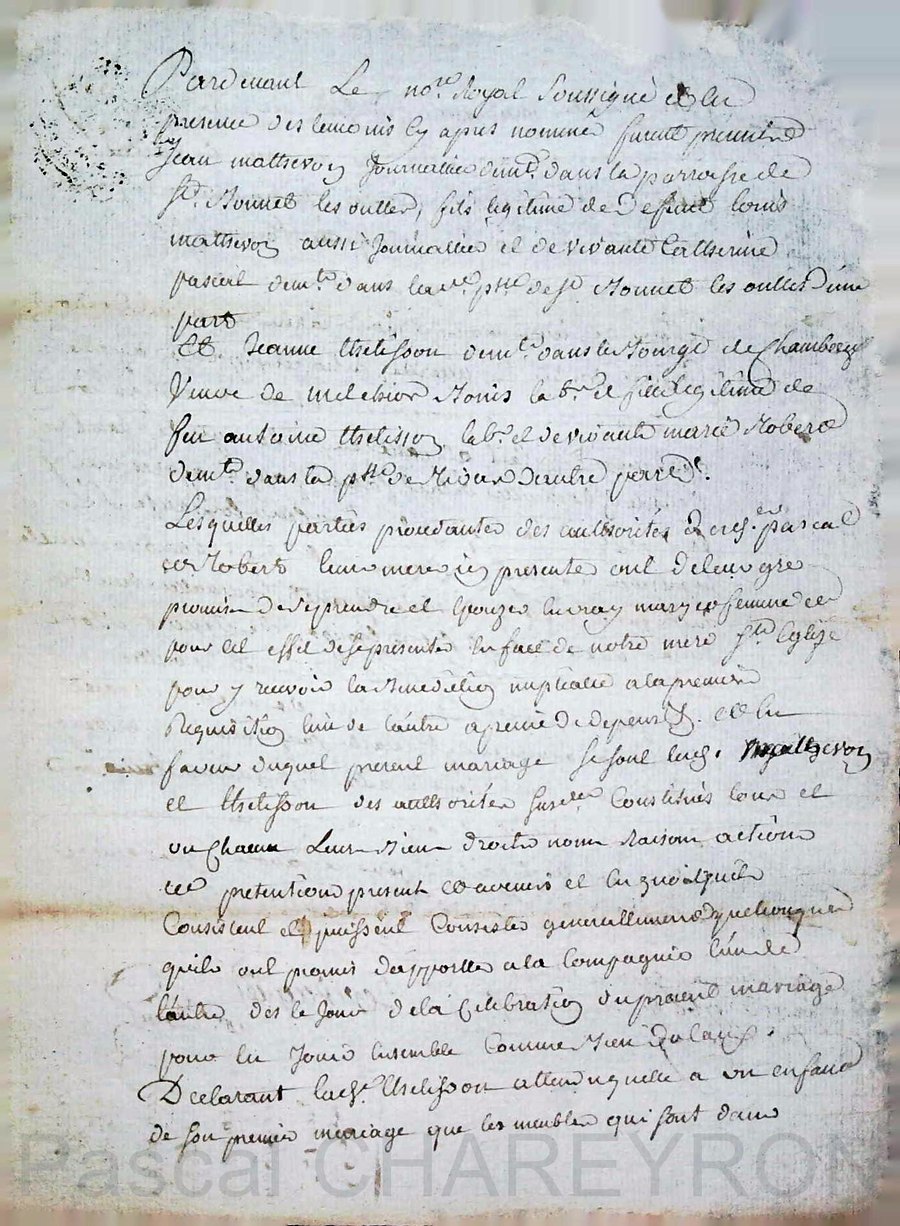 Pardevant Le no.re Royal Soussigné et en
presence des temoins cy apres nommé furent present
Jean mathevon Journallier dem.t dans la parroisse de
S.t Bonnet les oulles, fils legitime de Defunt louis
mathevon aussi Journallier et de vivante Catherine
pascal dem.te dans lad. p.sse de S.t Bonnet les oulles d'une
part
Et Jeanne thelisson dem.te dans le Bourg de Chambeuf
Veuve de melchior la.br et fille legitime de
feu antoine thelisson lab.r et de vivante marie Robert
dem.te dans la p.sse de d'autre part.
Lesquelles parties procedantes des authorités pascal
et Robert leurs meres icy presente ont de leur gre
promis de se prendre et Epouzer en vray mary et femme et
pour cet effet de se presenter en face de notre mere S.te Eglize
pour y recevoir la Benediction nuptialle a la premiere
Requisition l'un de l'autre a peine de depens &. et en
faveur duquel present mariage se sont lesd. mathevon
et thelisson des authorités constitués tous et
un Chacun Leurs Biens droits noms Raisons actions
et pretentions present et avenirs et en quoi qu'ils
Consistent et puissent Consister generallement quelconques
qu'ils ont promis d'apporter a la Compagnie l'un de
l'autre des le Jour de la Celebration du present mariage
pour en Jouir Ensemble Comme Bien
Declarant lad. thelisson attendu quelle a un enfant
de son premier mariage que les meubles qui sont dans
Pascal CHAREYRON